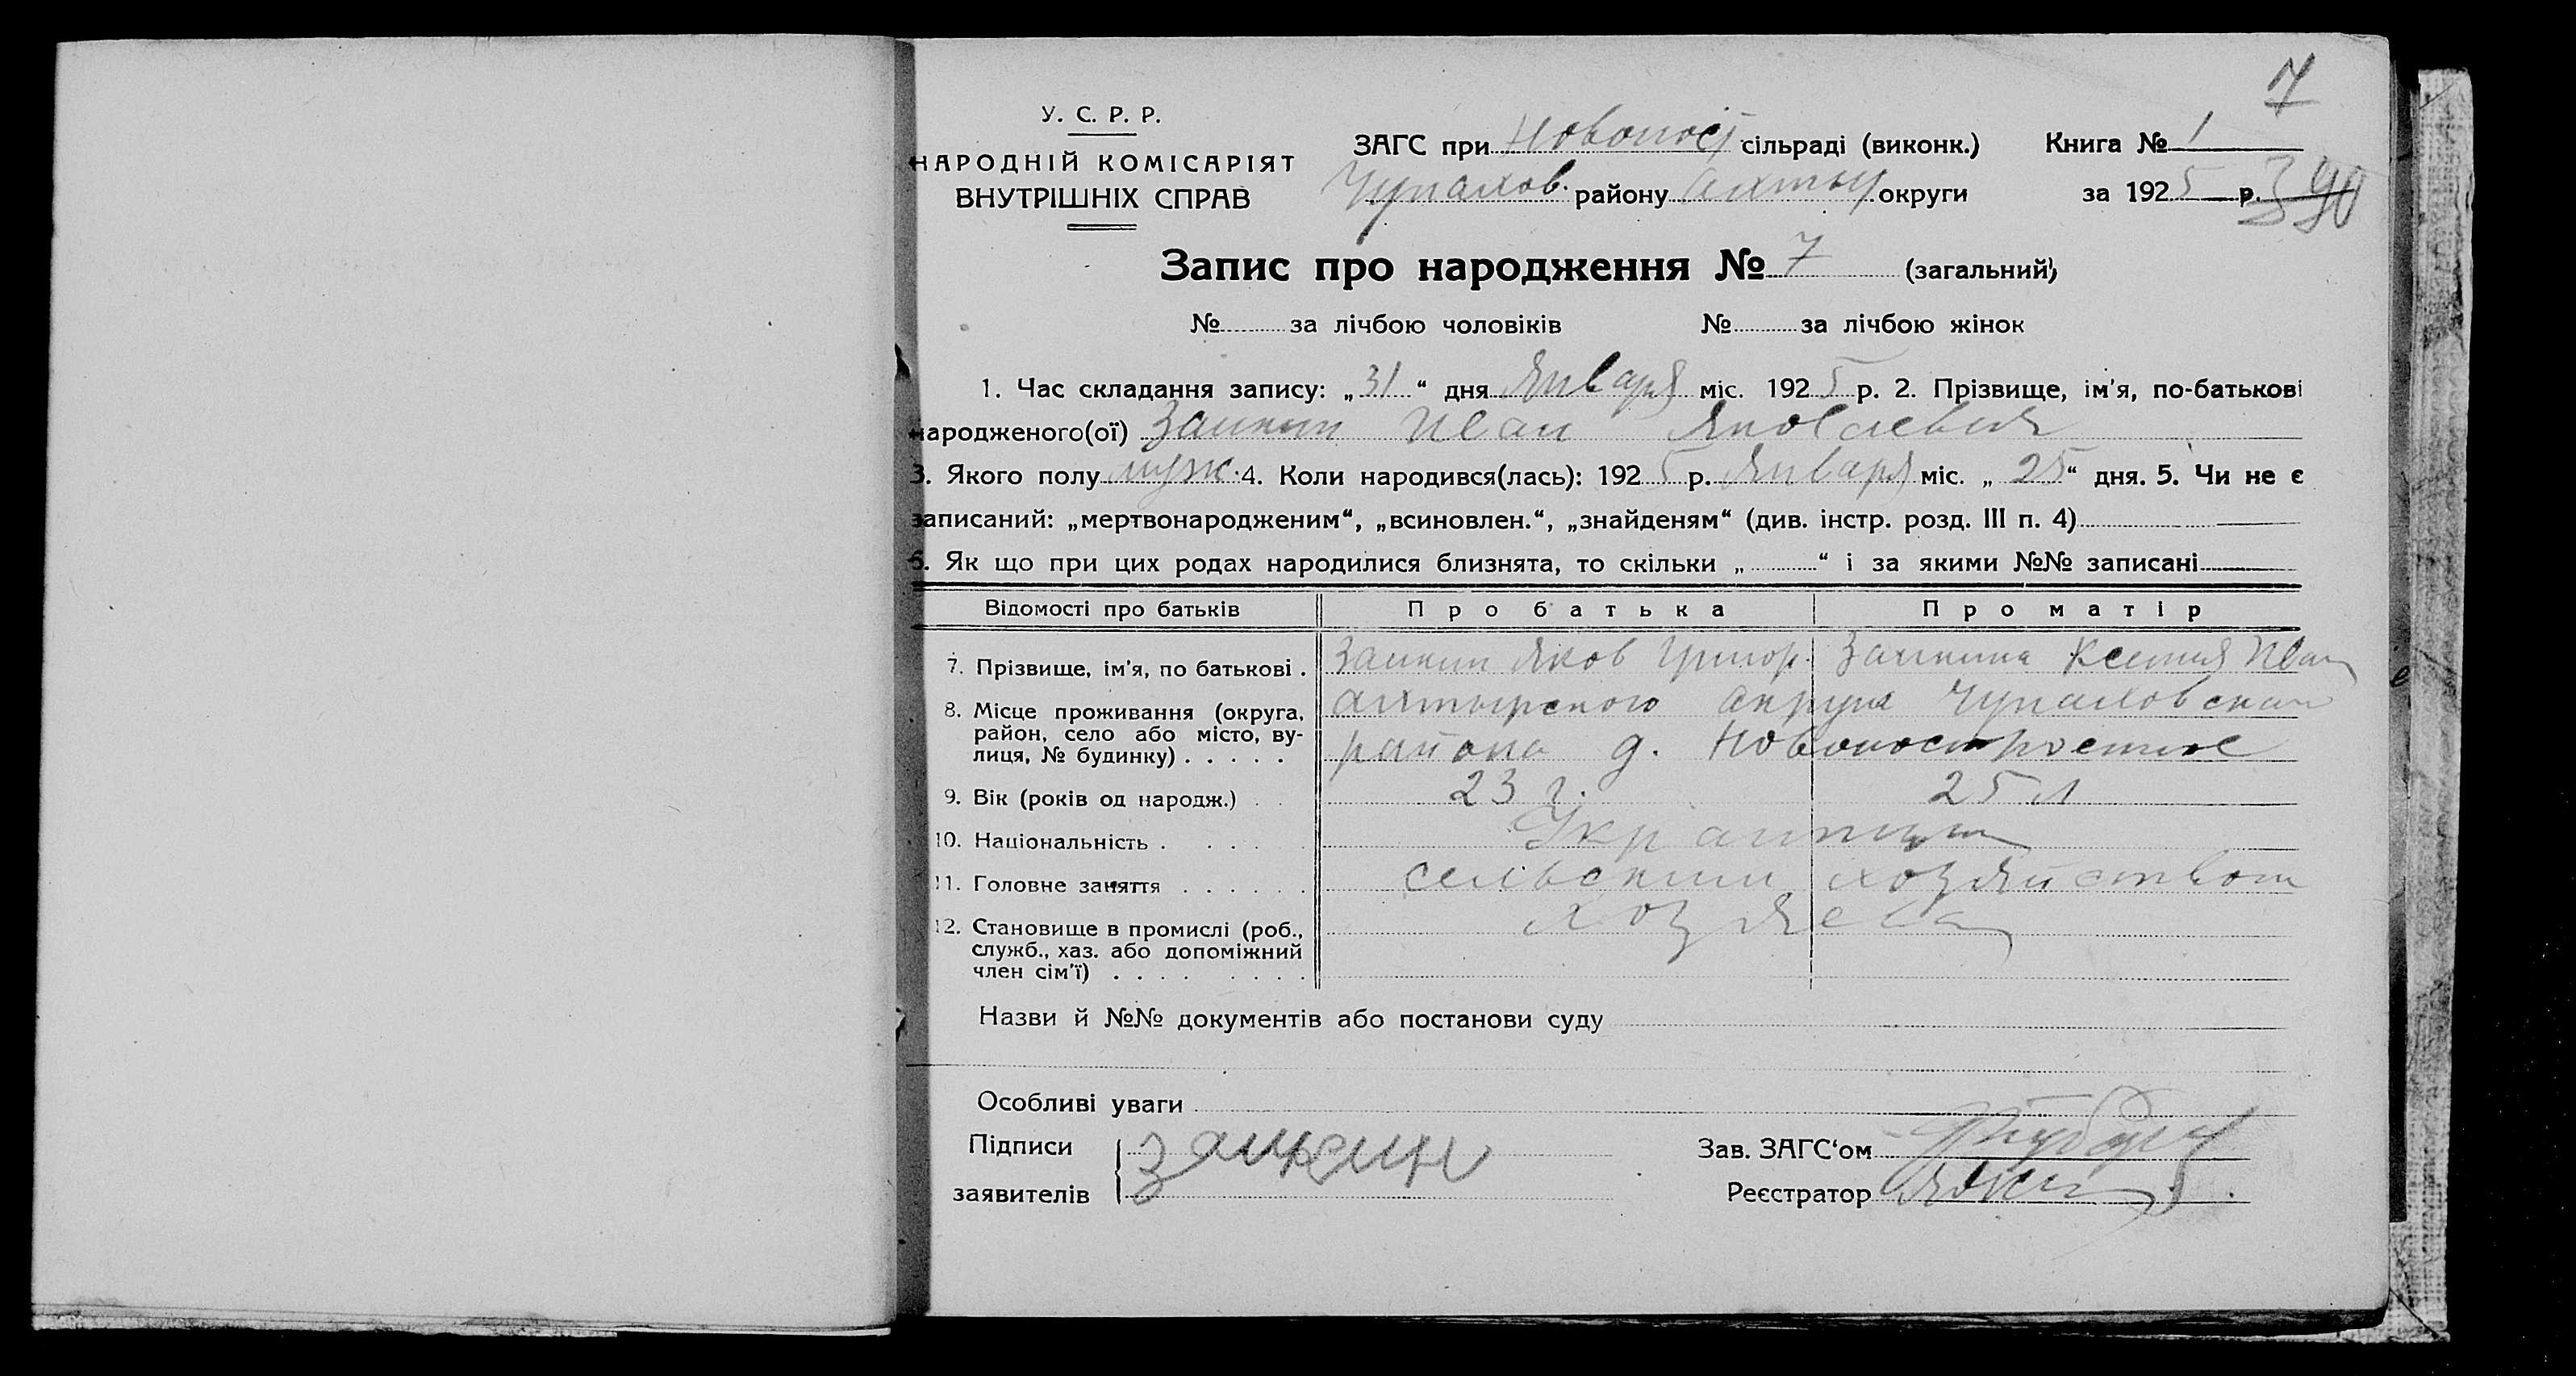 7
У. С. Р. Р.
НАРОДНІЙ КОМІСАРІЯТ
ВНУТРІШНІХ СПРАВ
ЗАГС при Новопост сільраді (виконк.) Книга № 1
Чупахов. району Ахтыр округи за 1925 р. 390
Запис про народження № 7 (загальний)
№ за лічбою чоловіків № за лічбою жінок
1. Час складання запису: „31“ дня Января міс. 1925 р. 2. Прізвище, ім'я, по-батькові
народженого(ої) Заикин Иван Яковлевич
3. Якого полу муж. 4. Коли народився(лась): 1925 р. Января міс. „25“ дня. 5. Чи не є
записаний: „мертвонародженим“, „всиновлен.“, „знайденям“ (див. інстр. розд. III п. 4)
6. Як що при цих родах народилися близнята, то скільки „ “ і за якими №№ записані
Відомості про батьків Про батька Про матір
7. Прізвище, ім'я, по батькові . Заикин Яков Григор. Заикина Ксения Иван
8. Місце проживання (округа, район, село або місто, вулиця, № будинку) . . . . . Ахтырского округа Чупаховскаго
района д. Новопостроеное
9. Вік (років од народж.) . . 23 г. 25 л
10. Національність . . . . Украинцы
11. Головне заняття . . . . . . сельским хозяйством
12. Становище в промислі (роб., хозяева
служб., хаз. або допоміжний
член сім'ї) . . . . . . . .
Назви й №№ документів або постанови суду
Особливі уваги
Підписи Заикин Зав. ЗАГС'ом
заявителів Реєстратор